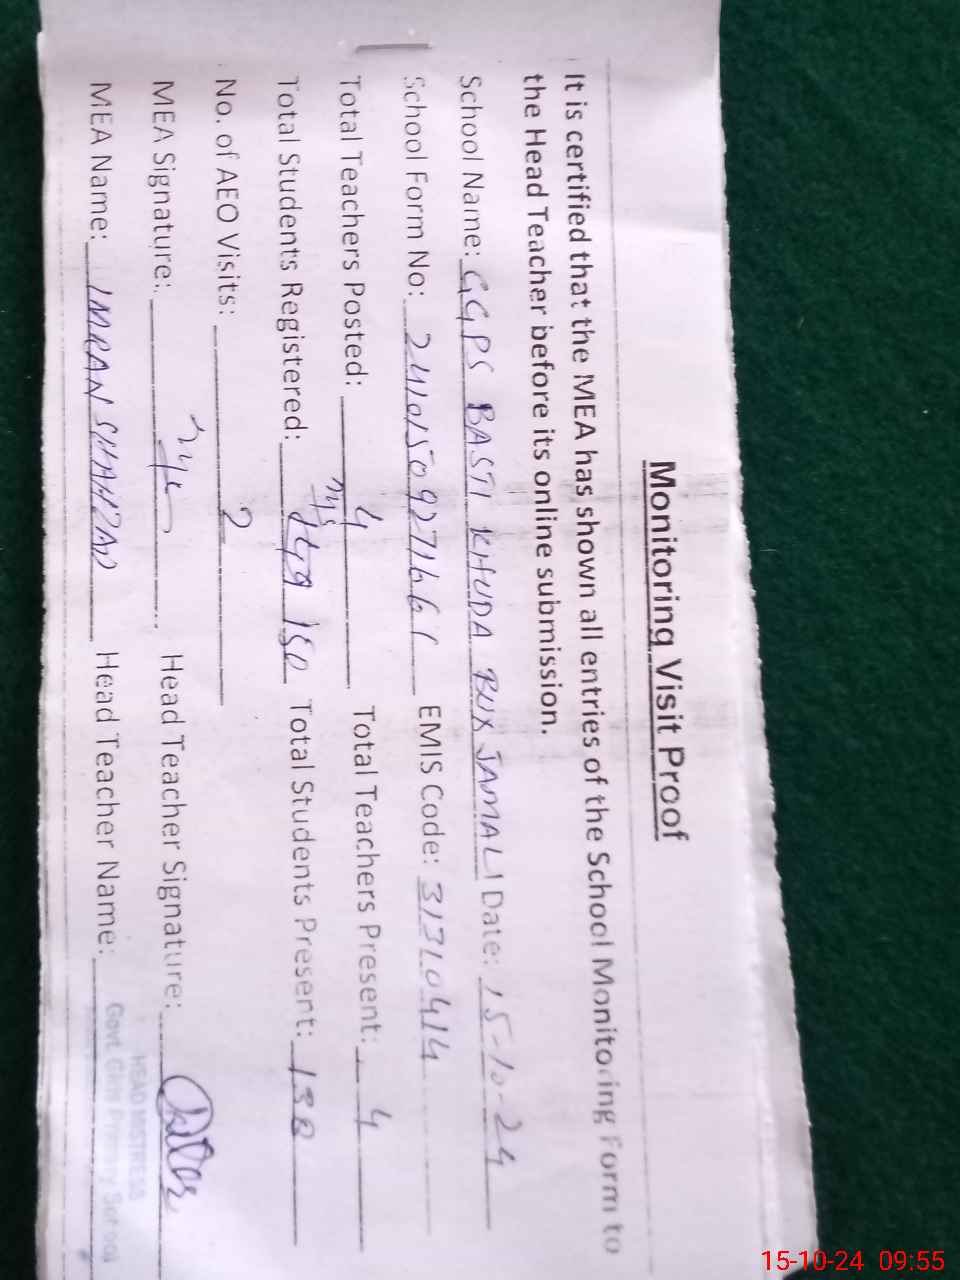 Monitoring Visit Proof
It is certified that the MEA has shown all entries of the School Monitoring Form to
the Head Teacher before its online submission.
School Name: GGPS BASTI KHUDA BUX JAMALI Date: 15-10-24
School Form No: EMIS Code: 31320414
Total Teachers Posted: 4 Total Teachers Present: 4
Total Students Registered: 150 Total Students Present: 138
No. of AEO Visits: 2
MEA Signature: Head Teacher Signature:
MEA Name: IMRAN SHAHZAD Head Teacher Name:
HEAD MISTRESS
Govt. Girls Primary School
15-10-24 09:55